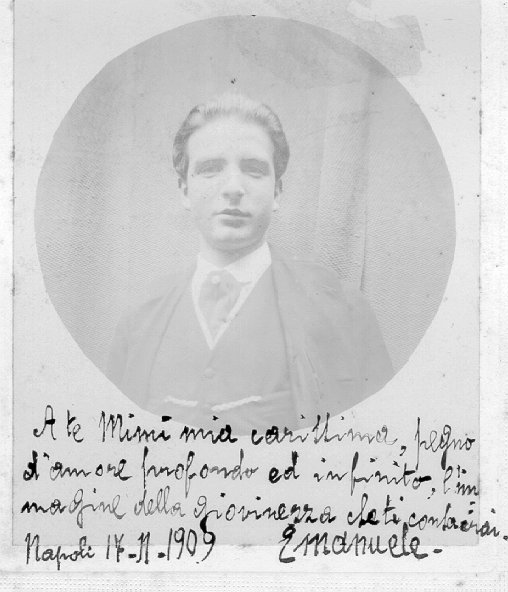 A te Mimi mia carissima, pegno
d'amore profondo ed infinito, l'im
magine della giovinezza che ti consacrai.
Napoli 17-11-1909 Emanuele.-